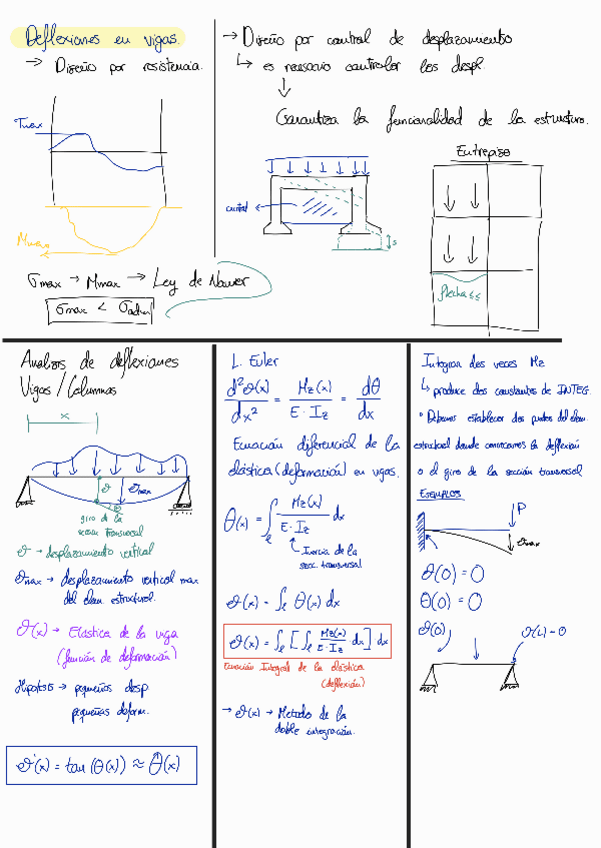 Deflexiones en vigas.
→ Diseño por resistencia.
Tmax
Mmax
σmax → Mmax → Ley de Navier
σmax < σadm
→ Diseño por control de desplazamiento
↳ es necesario controlar los despl.
↓
Garantiza la funcionalidad de la estructura.
cristal
s
Entrepiso
flecha ≤≤
Analisis de deflexiones
Vigas / Columnas
x
ϑ
ϑmax
θ
giro de la
seccion transversal
ϑ → desplazamiento vertical
ϑmax → desplazamiento vertical max
del elem. estructural.
ϑ(x) → Elastica de la viga
(función de deformación)
Hipotesis → pequeños desp
pequeñas deform.
ϑ'(x) = tan (θ(x)) ≈ θ(x)
L. Euler
d²ϑ(x)/dx² = Mz(x)/E·Iz = dθ/dx
Ecuación diferencial de la
elástica (deformación) en vigas.
θ(x) = ∫ℓ Mz(x)/E·Iz dx
Inercia de la
secc. transversal
ϑ(x) = ∫ℓ θ(x) dx
ϑ(x) = ∫ℓ [∫ℓ Mz(x)/E·Iz dx] dx
Ecuación Integral de la elástica
(deflexión)
→ ϑ(x) → Metodo de la
doble integración.
Integran dos veces Mz
↳ produce dos constantes de INTEG.
° Debemos establecer dos puntos del elem.
estructural donde conozcamos la deflexión
o el giro de la sección transversal
EJEMPLOS
P
ϑmax
ϑ(0) = 0
θ(0) = 0
ϑ(0)
ϑ(L) = 0